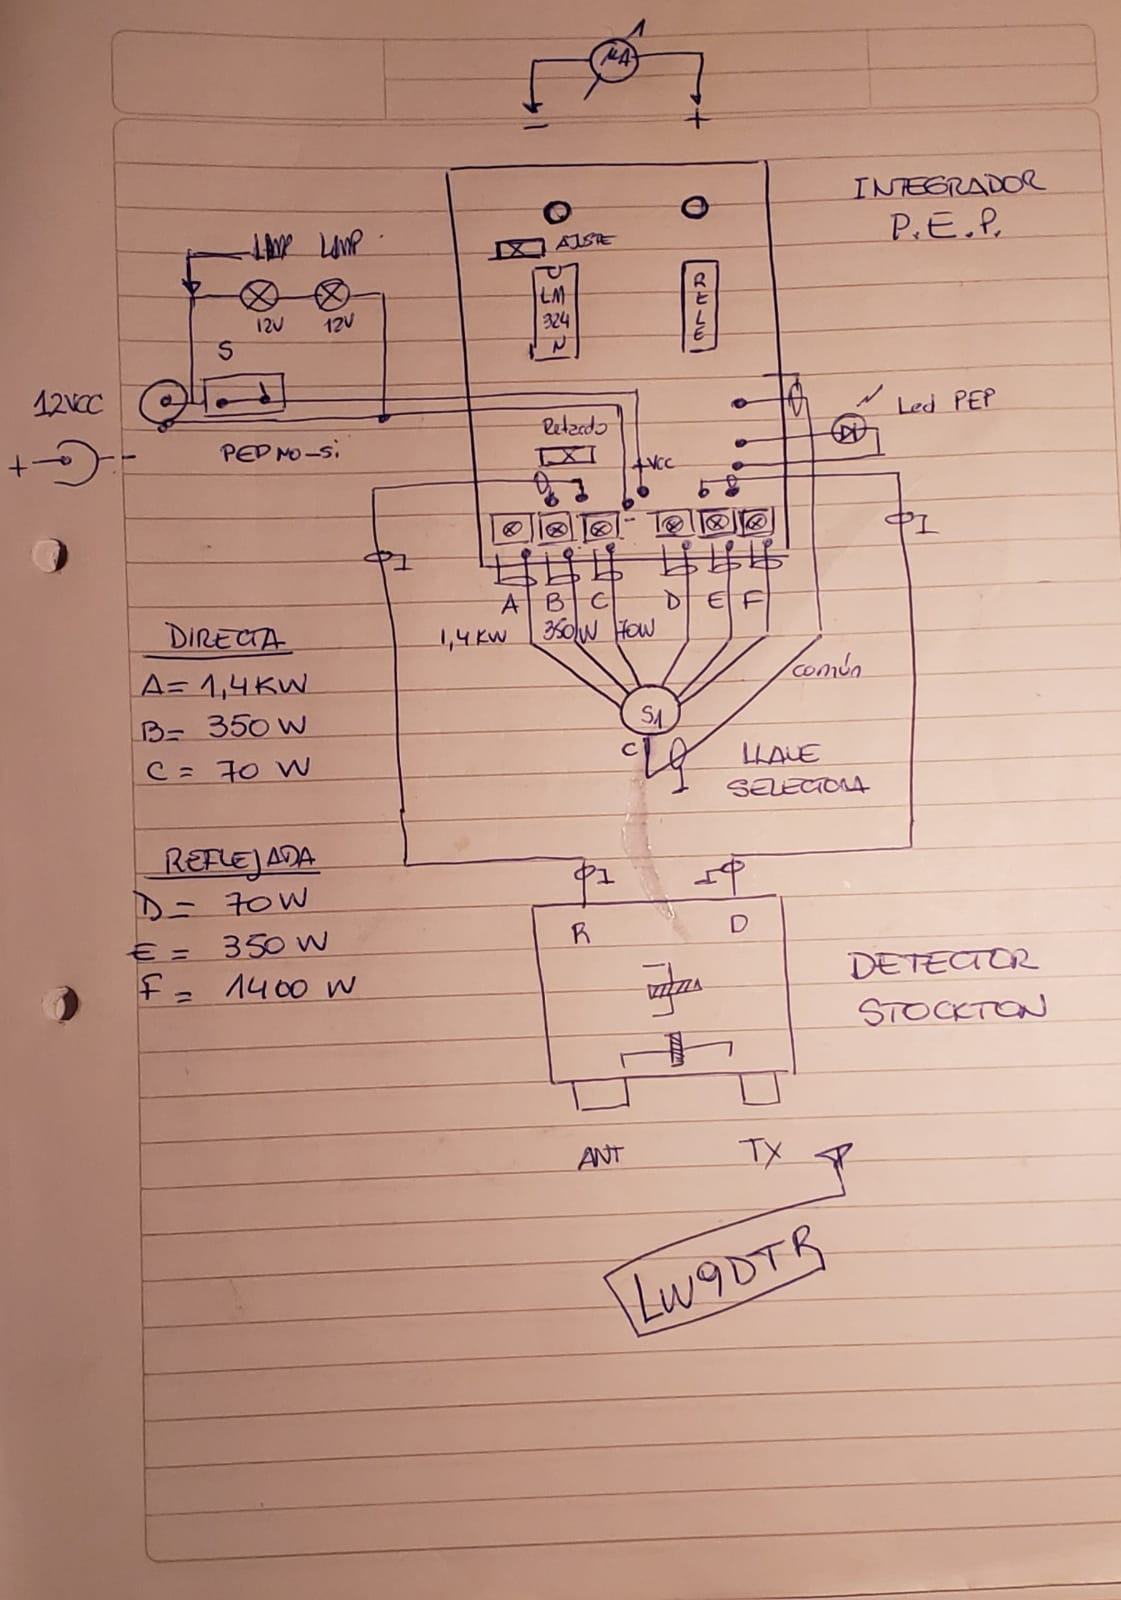 µA
- +
INTEGRADOR
P.E.P.
LAMP LAMP
AJSTE
LM
324
N
RELE
12V 12V
S
12VCC
+
PEP NO-Si
Retardo
+VCC
-
Led PEP
A B C D E F
1,4KW 350W 70W
común
S1
C
LLAVE
SELECTORA
DIRECTA
A= 1,4KW
B= 350 W
C= 70 W
REFLEJADA
D= 70W
E= 350 W
F= 1400 W
R D
DETECTOR
STOCKTON
ANT TX
LW9DTR